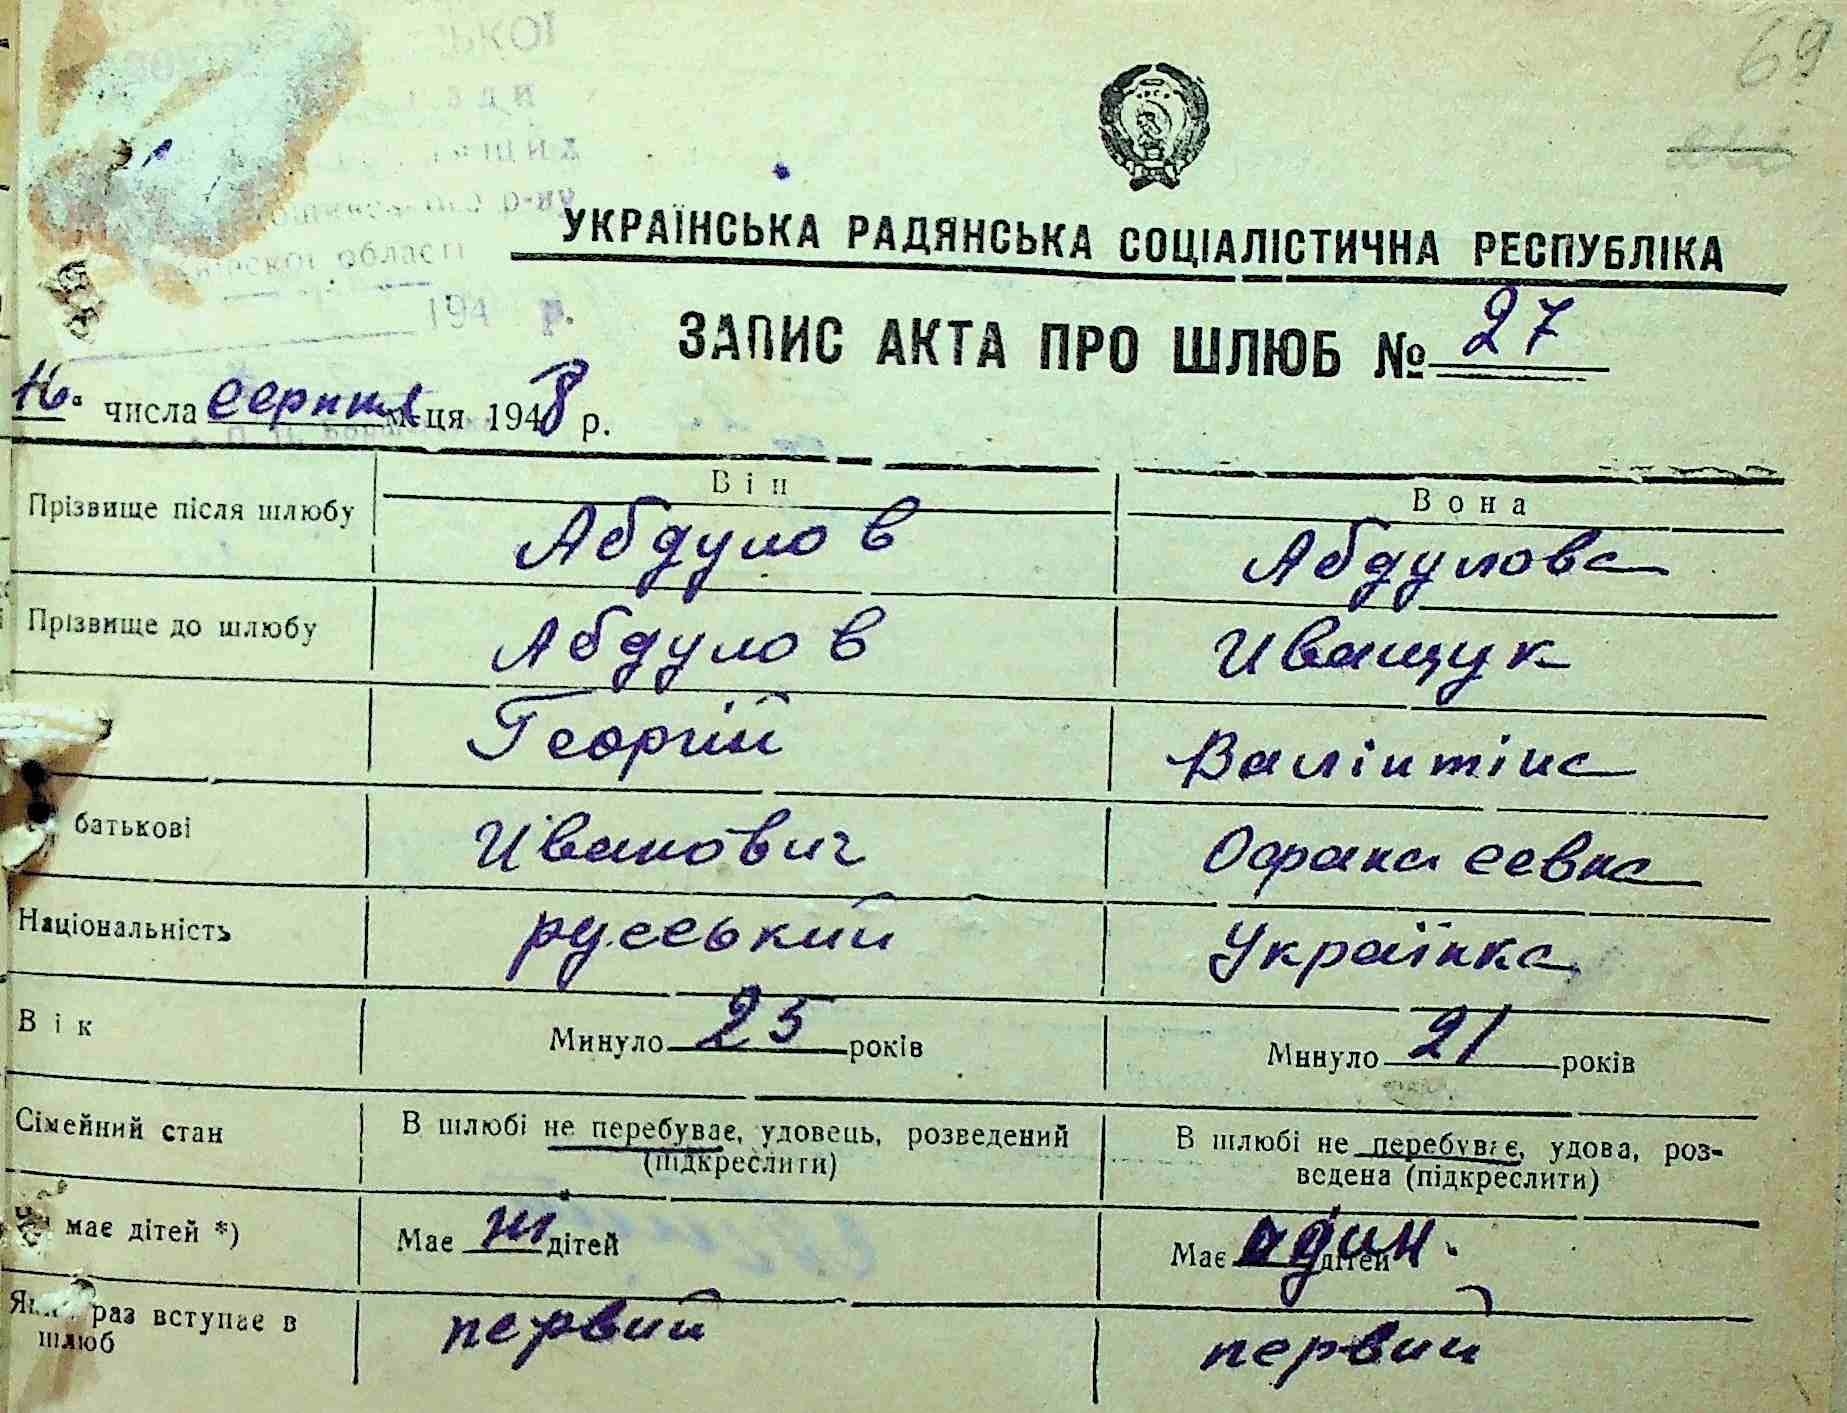 69
УКРАЇНСЬКА РАДЯНСЬКА СОЦІАЛІСТИЧНА РЕСПУБЛІКА
області
194 р.
ЗАПИС АКТА ПРО ШЛЮБ № 27
16. числа серпня м-ця 1948 р.
Він Вона
Прізвище після шлюбу Абдулов Абдулова
Прізвище до шлюбу Абдулов Иващук
Георгій Валінтіна
батькові Иванович Офанасеевна
Національність русський Українка
Вік Минуло 25 років Минуло 21 років
Сімейний стан В шлюбі не перебуває, удовець, розведений (підкреслити) В шлюбі не перебуває, удова, роз-
ведена (підкреслити)
має дітей *) Має ні дітей Має один. дітей
раз вступає в первий первий
шлюб